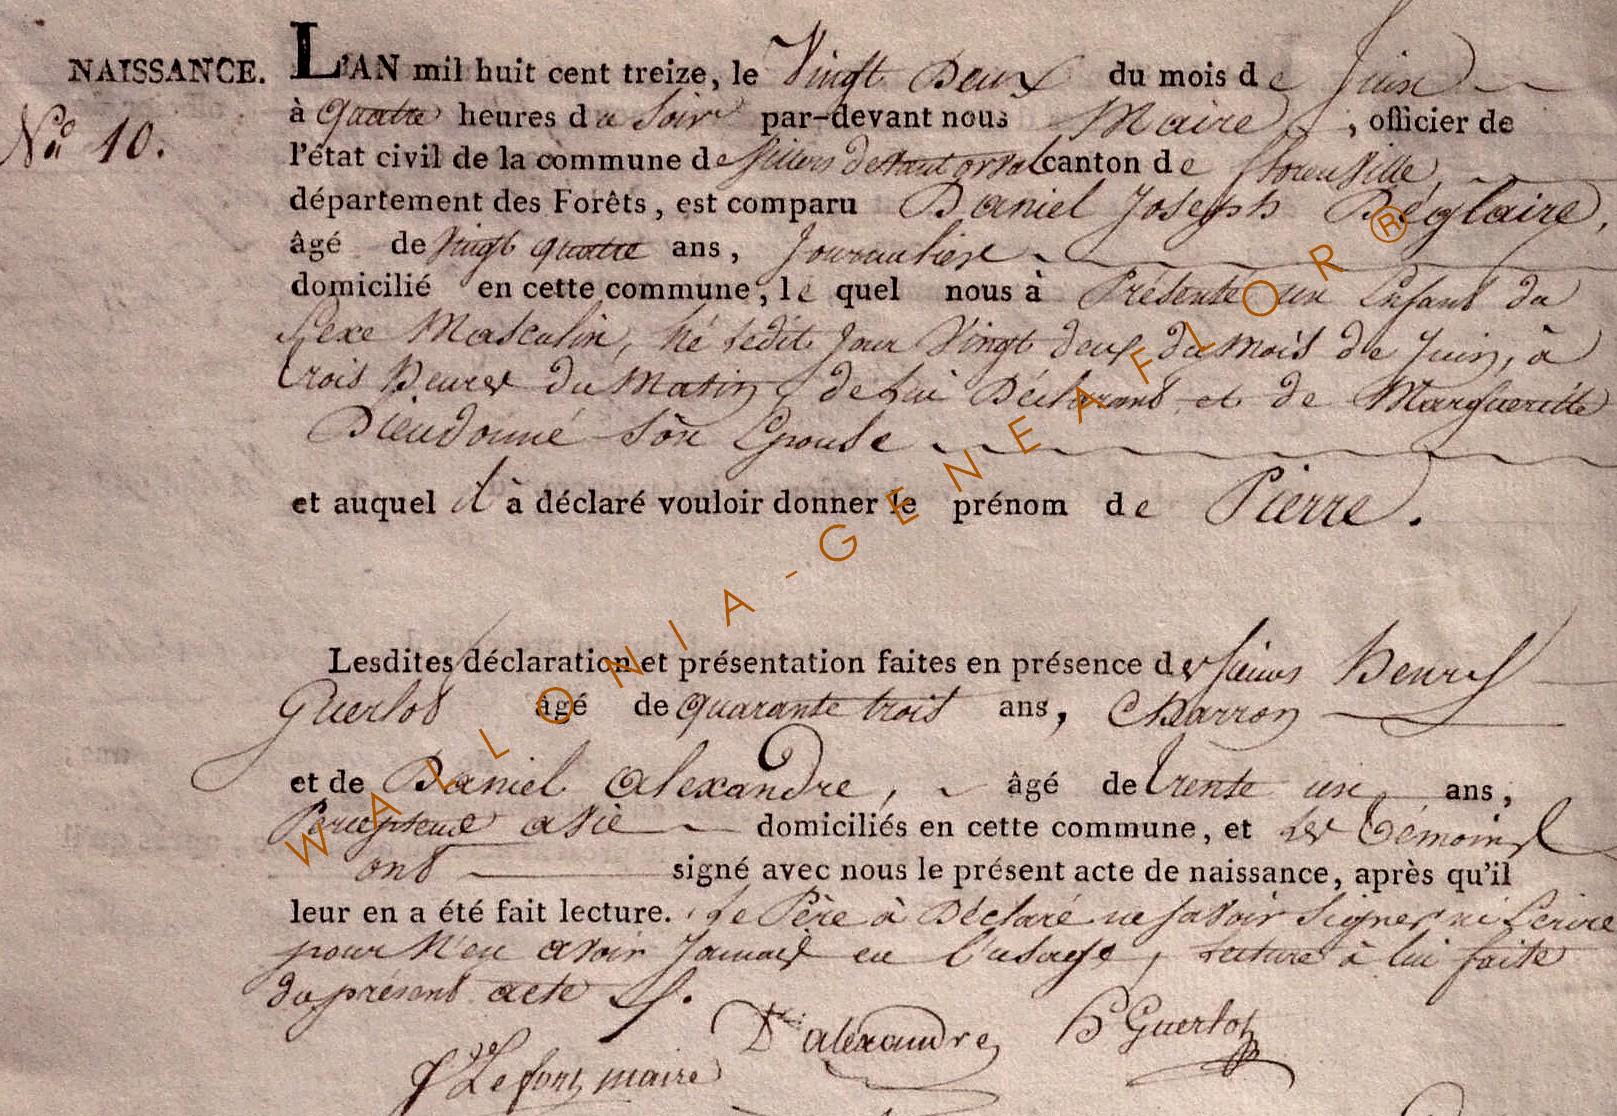 NAISSANCE. L'AN mil huit cent treize, le Vingt Deux du mois de Juin
No 10. à quatre heures du Soir par-devant nous Maire, officier de
l'état civil de la commune de Villers devant orval canton de florenville,
département des Forêts, est comparu Daniel Joseph Béglaire,
âgé de vingt quatre ans, Journalier
domicilié en cette commune, le quel nous à Présenté un Enfant du
Sexe Masculin, né ledit Jour Vingt deux du Mois de Juin, à
trois heures du Matin, de Lui Déclarant et de Margueritte
Dieudonné Son Epouse
et auquel il à déclaré vouloir donner le prénom de Pierre.
Lesdites déclaration et présentation faites en présence des Sieurs henry
Guerlot âgé de quarante trois ans, Charron
et de Daniel alexandre, âgé de trente un ans,
domiciliés en cette commune, et les témoins
ont signé avec nous le présent acte de naissance, après qu'il
leur en a été fait lecture. Le Père à Déclaré ne savoir signer ni Ecrire
pour n'en avoir Jamais eu l'usage, lecture à lui faite
du présent acte
alexandre h Guerlot
Lefort, maire
WALLONIA-GENEAFLOR®